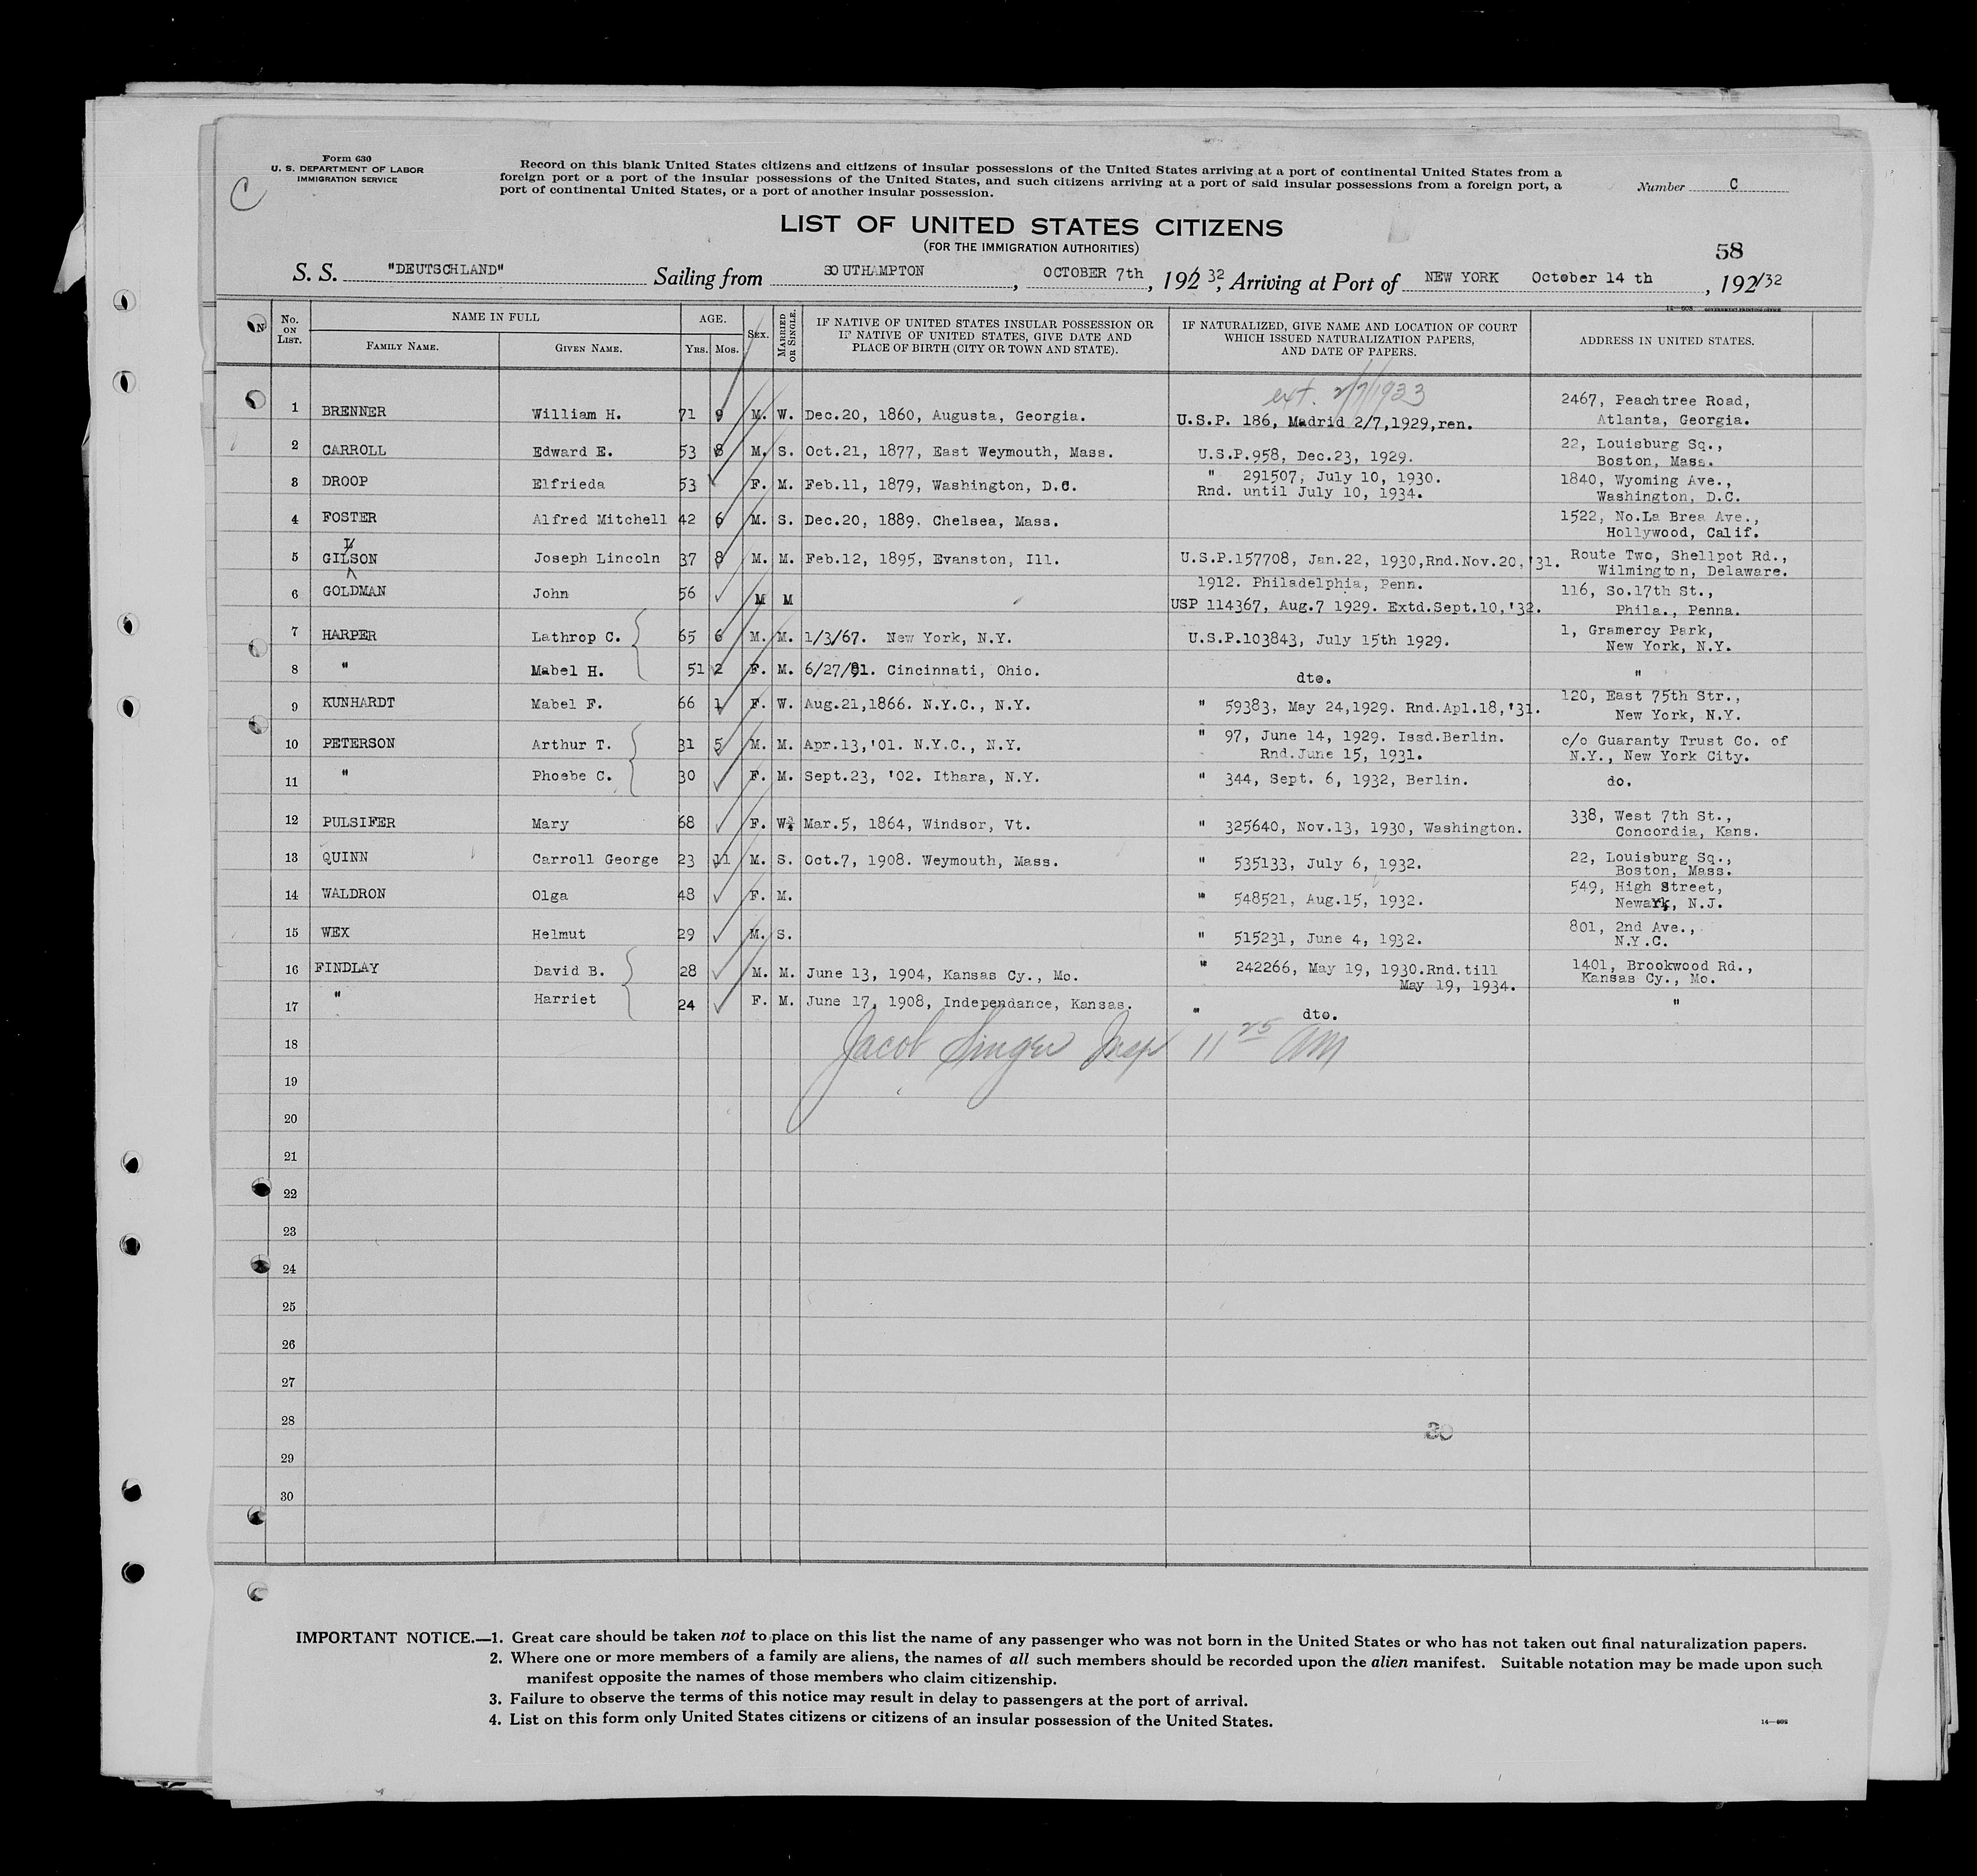 Form 630
U. S. DEPARTMENT OF LABOR
IMMIGRATION SERVICE
C
Record on this blank United States citizens and citizens of insular possessions of the United States arriving at a port of continental United States from a
foreign port or a port of the insular possessions of the United States, and such citizens arriving at a port of said insular possessions from a foreign port, a
port of continental United States, or a port of another insular possession.
Number C
LIST OF UNITED STATES CITIZENS
(FOR THE IMMIGRATION AUTHORITIES)
58
S. S. "DEUTSCHLAND" Sailing from SOUTHAMPTON, OCTOBER 7th, 192 32, Arriving at Port of NEW YORK October 14 th, 192/32
No. ON LIST. NAME IN FULL FAMILY NAME. GIVEN NAME. AGE. YRS. MOS. SEX. MARRIED OR SINGLE.
IF NATIVE OF UNITED STATES INSULAR POSSESSION OR
IF NATIVE OF UNITED STATES, GIVE DATE AND
PLACE OF BIRTH (CITY OR TOWN AND STATE).
IF NATURALIZED, GIVE NAME AND LOCATION OF COURT
WHICH ISSUED NATURALIZATION PAPERS,
AND DATE OF PAPERS.
ADDRESS IN UNITED STATES.
ext. 2/7/1933
1 BRENNER William H. 71 9 M. W. Dec.20, 1860, Augusta, Georgia. U.S.P. 186, Madrid 2/7,1929,ren. 2467, Peachtree Road,
Atlanta, Georgia.
2 CARROLL Edward E. 53 8 M. S. Oct.21, 1877, East Weymouth, Mass. U.S.P.958, Dec.23, 1929. 22, Louisburg Sq.,
Boston, Mass.
3 DROOP Elfrieda 53 F. M. Feb.11, 1879, Washington, D.C. " 291507, July 10, 1930. 1840, Wyoming Ave.,
Rnd. until July 10, 1934. Washington, D.C.
4 FOSTER Alfred Mitchell 42 6 M. S. Dec.20, 1889. Chelsea, Mass. 1522, No.La Brea Ave.,
Hollywood, Calif.
L
5 GILSON Joseph Lincoln 37 8 M. M. Feb.12, 1895, Evanston, Ill. U.S.P.157708, Jan.22, 1930,Rnd.Nov.20,'31. Route Two, Shellpot Rd.,
Wilmington, Delaware.
6 GOLDMAN John 56 M M 1912. Philadelphia, Penn. 116, So.17th St.,
USP 114367, Aug.7 1929. Extd.Sept.10,'32. Phila., Penna.
7 HARPER Lathrop C. 65 6 M. M. 1/3/67. New York, N.Y. U.S.P.103843, July 15th 1929. 1, Gramercy Park,
New York, N.Y.
8 " Mabel H. 51 2 F. M. 6/27/81. Cincinnati, Ohio. dto. "
9 KUNHARDT Mabel F. 66 1 F. W. Aug.21,1866. N.Y.C., N.Y. " 59383, May 24,1929. Rnd.Apl.18,'31. 120, East 75th Str.,
New York, N.Y.
10 PETERSON Arthur T. 31 5 M. M. Apr.13,'01. N.Y.C., N.Y. " 97, June 14, 1929. Issd.Berlin. c/o Guaranty Trust Co. of
Rnd.June 15, 1931. N.Y., New York City.
11 " Phoebe C. 30 F. M. Sept.23, '02. Ithara, N.Y. " 344, Sept. 6, 1932, Berlin. do.
12 PULSIFER Mary 68 F. W. Mar.5, 1864, Windsor, Vt. " 325640, Nov.13, 1930, Washington. 338, West 7th St.,
Concordia, Kans.
13 QUINN Carroll George 23 11 M. S. Oct.7, 1908. Weymouth, Mass. " 535133, July 6, 1932. 22, Louisburg Sq.,
Boston, Mass.
14 WALDRON Olga 48 F. M. " 548521, Aug.15, 1932. 549, High Street,
Newark, N.J.
15 WEX Helmut 29 M. S. " 515231, June 4, 1932. 801, 2nd Ave.,
N.Y.C.
16 FINDLAY David B. 28 M. M. June 13, 1904, Kansas Cy., Mo. " 242266, May 19, 1930.Rnd.till 1401, Brookwood Rd.,
May 19, 1934. Kansas Cy., Mo.
17 " Harriet 24 F. M. June 17, 1908, Independance, Kansas. " dto. "
18 Jacob Singer Insp 11 25 AM
19
20
21
22
23
24
25
26
27
28
30
29
30
IMPORTANT NOTICE.—1. Great care should be taken not to place on this list the name of any passenger who was not born in the United States or who has not taken out final naturalization papers.
2. Where one or more members of a family are aliens, the names of all such members should be recorded upon the alien manifest. Suitable notation may be made upon such
manifest opposite the names of those members who claim citizenship.
3. Failure to observe the terms of this notice may result in delay to passengers at the port of arrival.
4. List on this form only United States citizens or citizens of an insular possession of the United States.